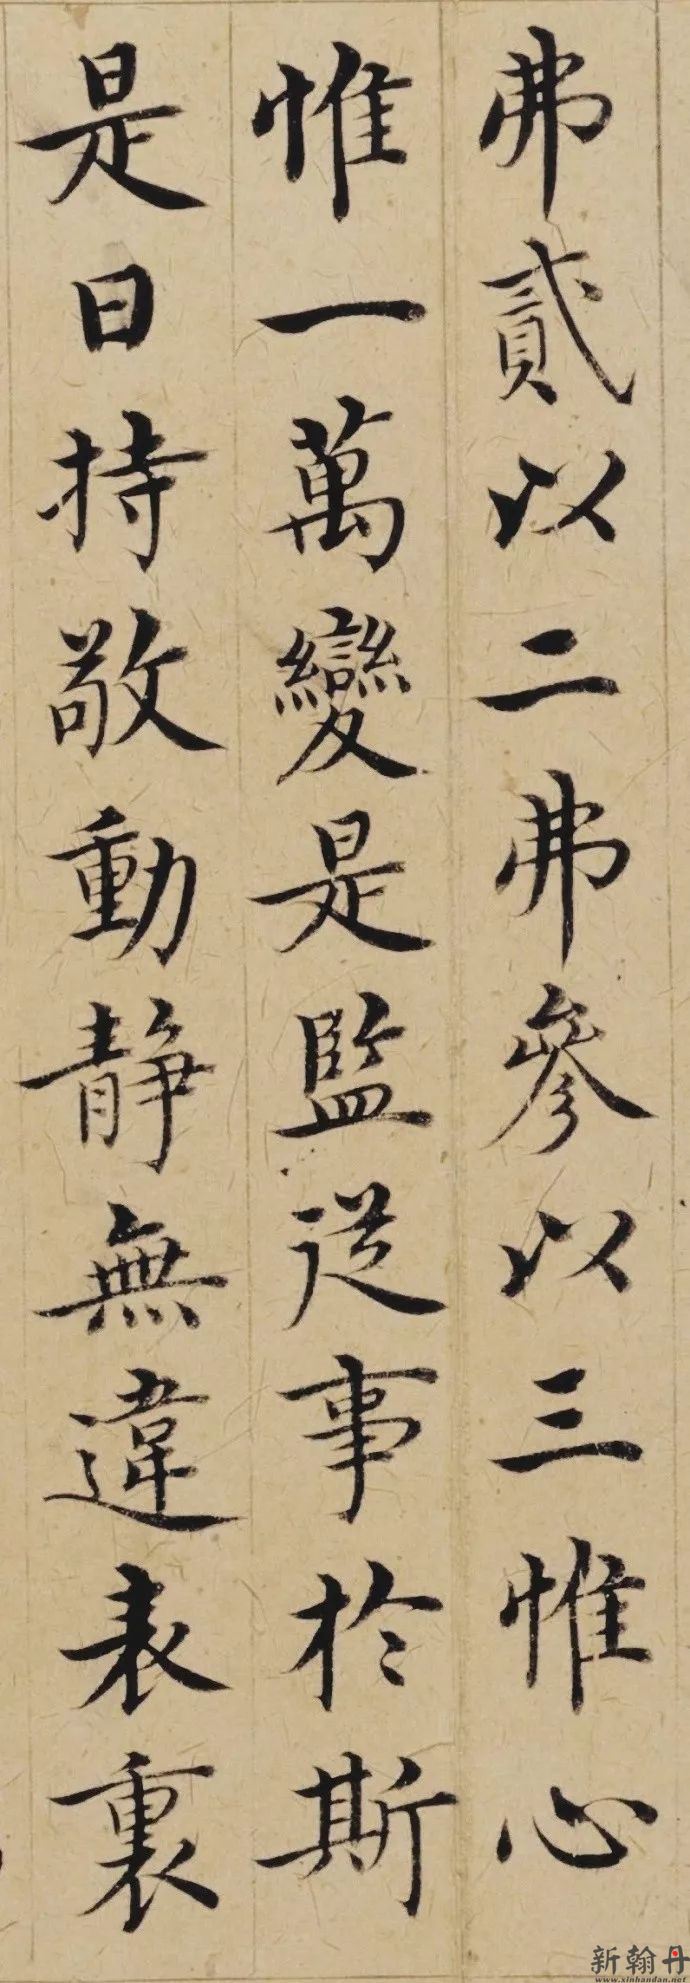 弗貳以二弗參以三惟心
惟一萬變是監從事於斯
是曰持敬動靜無違表裏
新翰丹
www.xinhandan.net